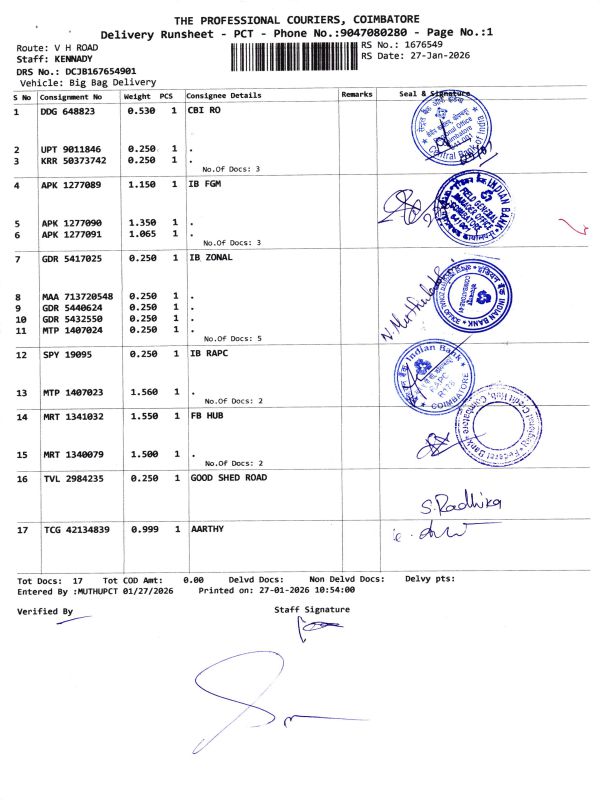 THE PROFESSIONAL COURIERS, COIMBATORE
Delivery Runsheet - PCT - Phone No.:9047080280 - Page No.:1
Route: V H ROAD RS No.: 1676549
Staff: KENNADY RS Date: 27-Jan-2026
DRS No.: DCJB167654901
Vehicle: Big Bag Delivery
S No Consignment No Weight PCS Consignee Details Remarks Seal & Signature
1 DDG 648823 0.530 1 CBI RO
2 UPT 9011846 0.250 1 .
3 KRR 50373742 0.250 1 .
No.Of Docs: 3
Central Bank of India
4 APK 1277089 1.150 1 IB FGM
5 APK 1277090 1.350 1 .
6 APK 1277091 1.065 1 .
No.Of Docs: 3
INDIAN BANK
FIELD GENERAL
MANAGER OFFICE
7 GDR 5417025 0.250 1 IB ZONAL
8 MAA 713720548 0.250 1 .
9 GDR 5440624 0.250 1 .
10 GDR 5432550 0.250 1 .
11 MTP 1407024 0.250 1 .
No.Of Docs: 5
INDIAN BANK
12 SPY 19095 0.250 1 IB RAPC
13 MTP 1407023 1.560 1 .
No.Of Docs: 2
Indian Bank
RAPC
COIMBATORE
14 MRT 1341032 1.550 1 FB HUB
15 MRT 1340079 1.500 1 .
No.Of Docs: 2
Federal Bank
16 TVL 2984235 0.250 1 GOOD SHED ROAD
S. Radhika
17 TCG 42134839 0.999 1 AARTHY
Tot Docs: 17 Tot COD Amt: 0.00 Delvd Docs: Non Delvd Docs: Delvy pts:
Entered By :MUTHUPCT 01/27/2026 Printed on: 27-01-2026 10:54:00
Verified By Staff Signature